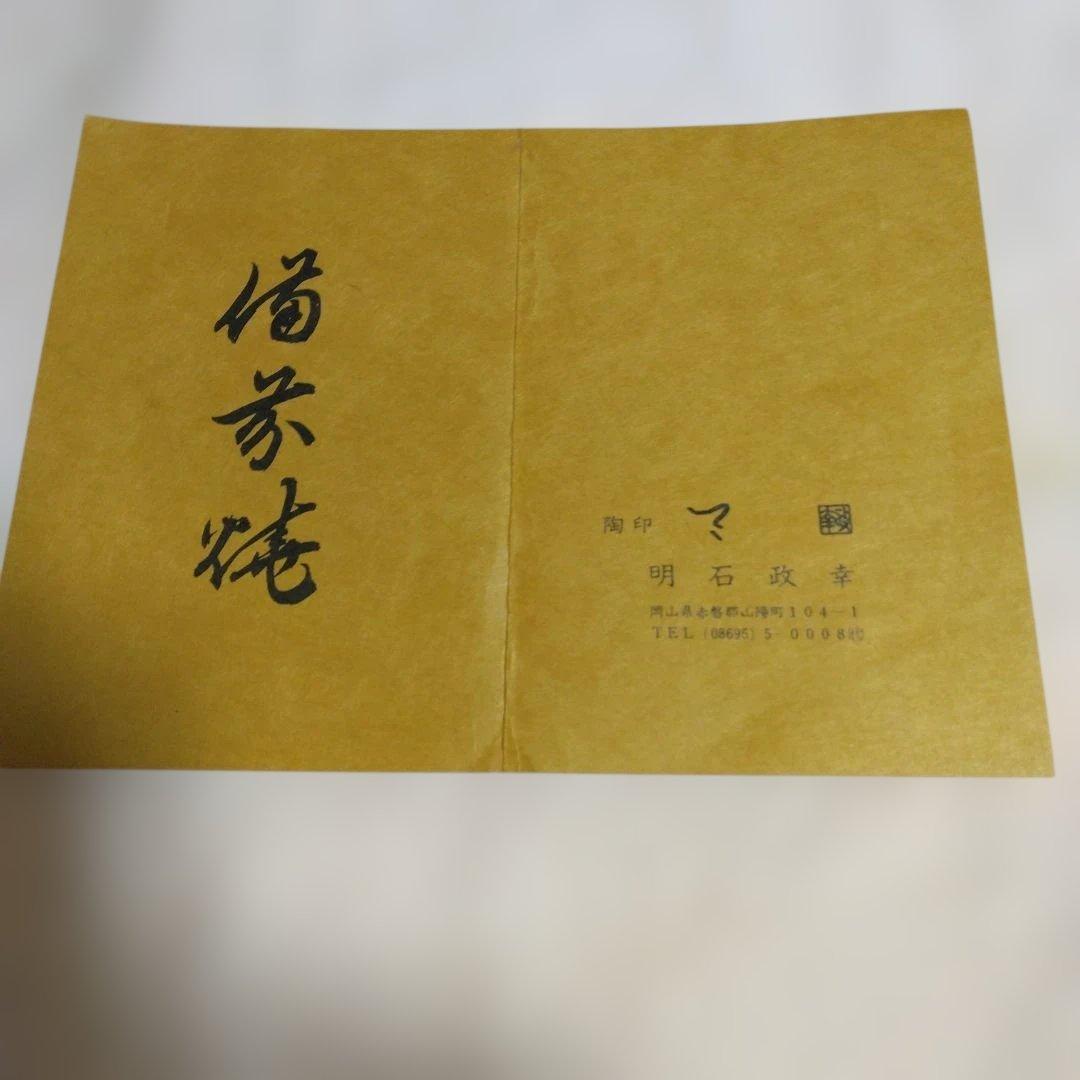 備前焼
陶印
明石政幸
岡山県赤磐郡山陽町104-1
TEL (08695) 5-0008代